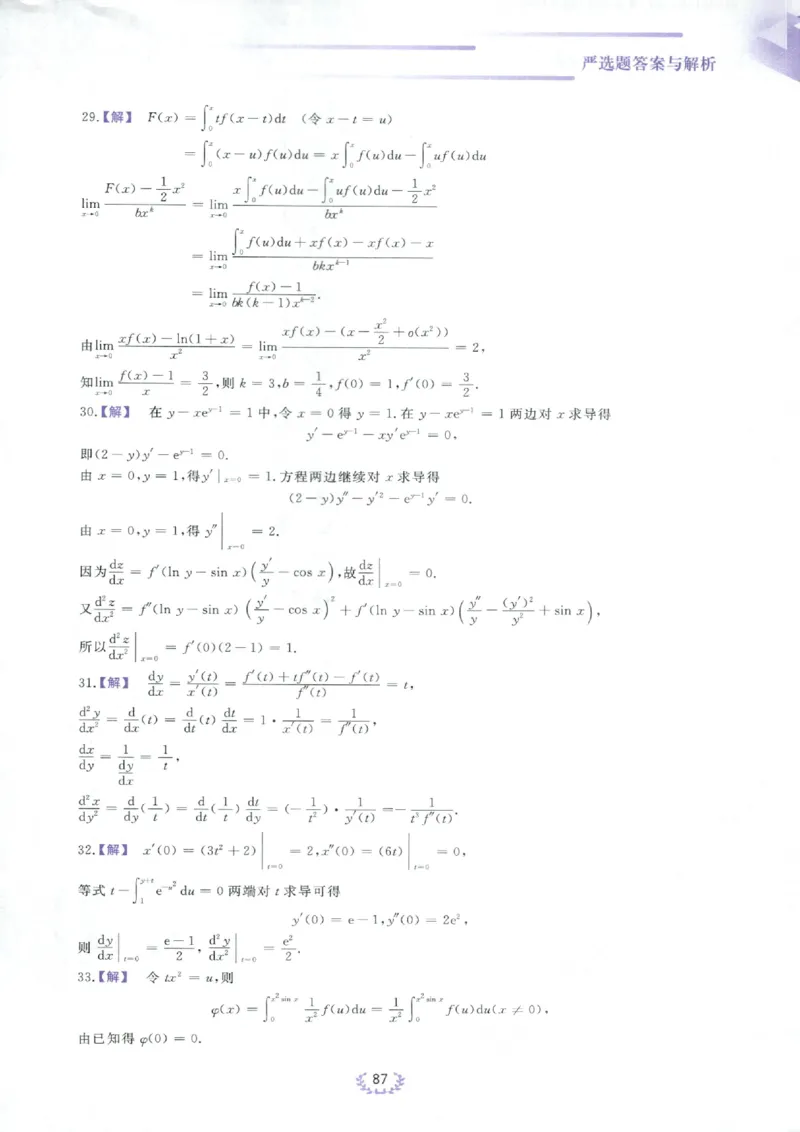 严选题答案与解析
29.【解】 F(x) = ∫₀ˣ tf(x−t)dt (令 x−t = u)
= ∫₀ˣ (x−u)f(u)du = x∫₀ˣ f(u)du − ∫₀ˣ uf(u)du
lim_{x→0} (F(x) − (1/2)x²)/(bxᵏ) = lim_{x→0} (x∫₀ˣ f(u)du − ∫₀ˣ uf(u)du − (1/2)x²)/(bxᵏ)
= lim_{x→0} (∫₀ˣ f(u)du + xf(x) − xf(x) − x)/(bkx^{k−1})
= lim_{x→0} (f(x)−1)/(bk(k−1)x^{k−2}).
由 lim_{x→0} (xf(x) − ln(1+x))/x² = lim_{x→0} (xf(x) − (x − x²/2 + o(x²)))/x² = 2,
知 lim_{x→0} (f(x)−1)/x = 3/2, 则 k = 3, b = 1/4, f(0) = 1, f′(0) = 3/2.
30.【解】 在 y − xe^{y−1} = 1 中,令 x = 0 得 y = 1. 在 y − xe^{y−1} = 1 两边对 x 求导得
y′ − e^{y−1} − xy′e^{y−1} = 0,
即(2−y)y′ − e^{y−1} = 0.
由 x = 0, y = 1, 得 y′|_{x=0} = 1. 方程两边继续对 x 求导得
(2−y)y″ − y′² − e^{y−1}y′ = 0.
由 x = 0, y = 1, 得 y″|_{x=0} = 2.
因为 dz/dx = f′(ln y − sin x)(y′/y − cos x), 故 dz/dx|_{x=0} = 0.
又 d²z/dx² = f″(ln y − sin x)(y′/y − cos x)² + f′(ln y − sin x)(y″/y − (y′)²/y² + sin x),
所以 d²z/dx²|_{x=0} = f′(0)(2−1) = 1.
31.【解】 dy/dx = y′(t)/x′(t) = (f′(t) + tf″(t) − f′(t))/f″(t) = t,
d²y/dx² = d/dx(t) = d/dt(t) dt/dx = 1 · 1/x′(t) = 1/f″(t),
dx/dy = 1/(dy/dx) = 1/t,
d²x/dy² = d/dy(1/t) = d/dt(1/t) dt/dy = (−1/t²) · 1/y′(t) = −1/(t³f″(t)).
32.【解】 x′(0) = (3t²+2)|_{t=0} = 2, x″(0) = (6t)|_{t=0} = 0,
等式 t − ∫₁^{y+t} e^{−u²}du = 0 两端对 t 求导可得
y′(0) = e−1, y″(0) = 2e²,
则 dy/dx|_{t=0} = (e−1)/2, d²y/dx²|_{t=0} = e²/2.
33.【解】 令 tx² = u, 则
φ(x) = ∫₀^{x² sin x} (1/x²)f(u)du = (1/x²)∫₀^{x² sin x} f(u)du (x ≠ 0),
由已知得 φ(0) = 0.
87